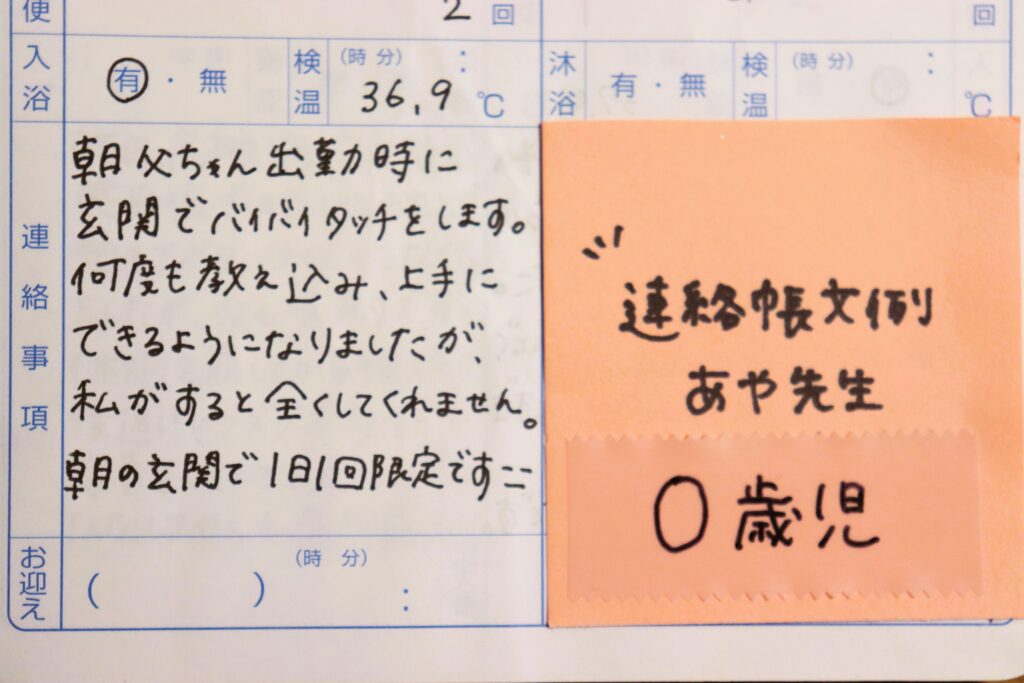 便 2 回 回
入浴 有・無 検温 (時 分) : 36.9 ℃ 沐浴 有・無 検温 (時 分) : ℃
連絡事項
朝父ちゃん出勤時に
玄関でバイバイタッチをします。
何度も教え込み、上手に
できるようになりましたが、
私がすると全くしてくれません。
朝の玄関で1日1回限定です
お迎え ( ) (時 分) :
連絡帳文例
あや先生
0歳児